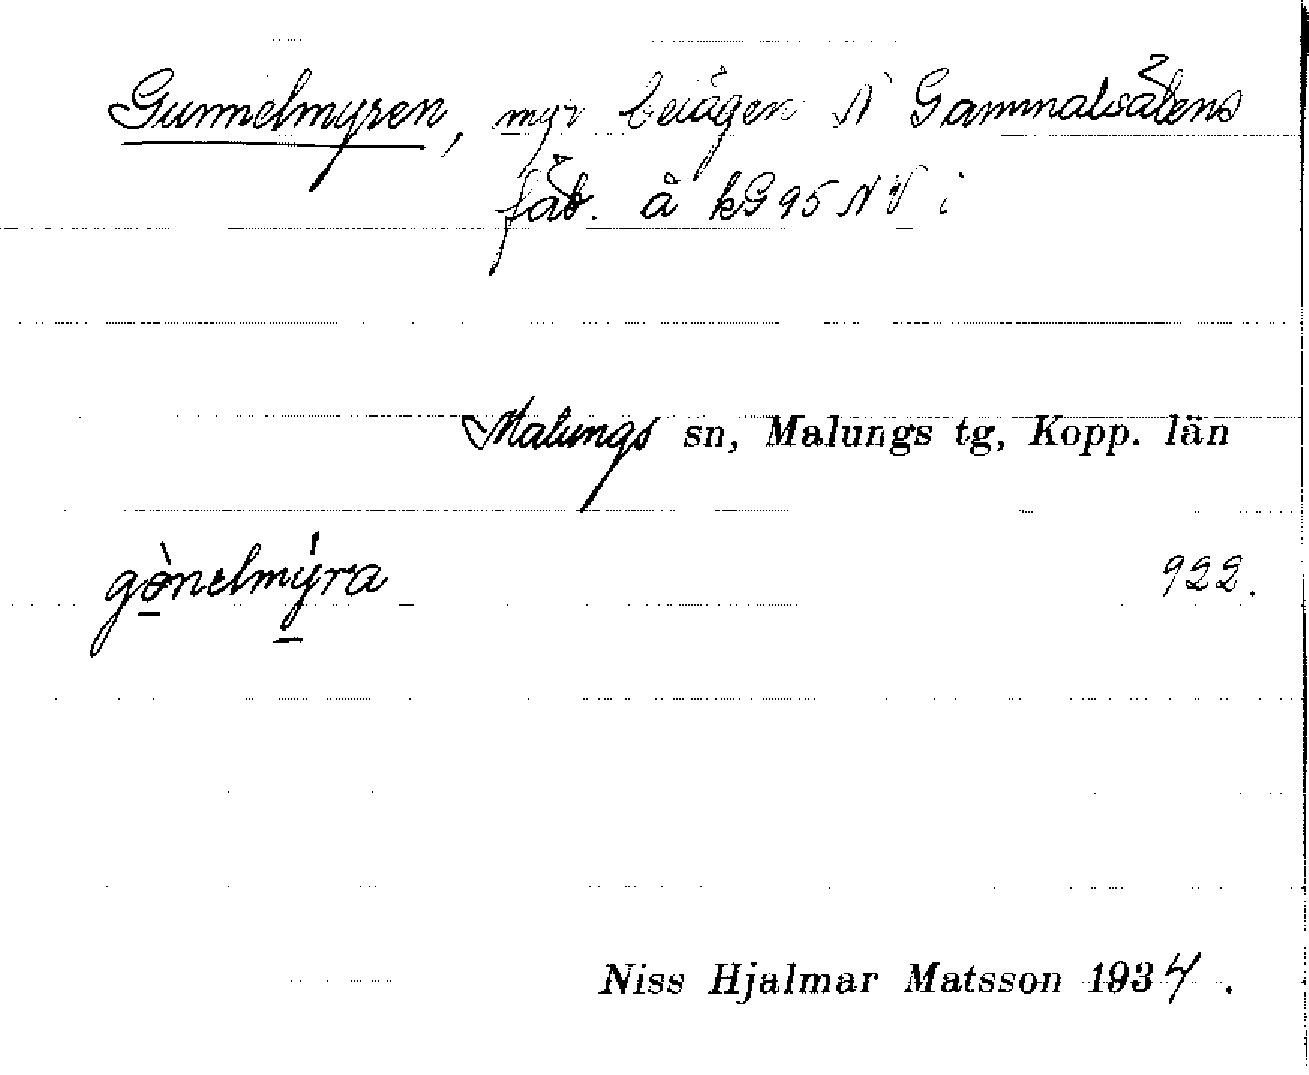 Gunnelmyren, myr belägen N Gammalsälens
fäb. å kG95NV i
Malungs sn, Malungs tg, Kopp. län
gònelmýra 922.
Niss Hjalmar Matsson 1934.